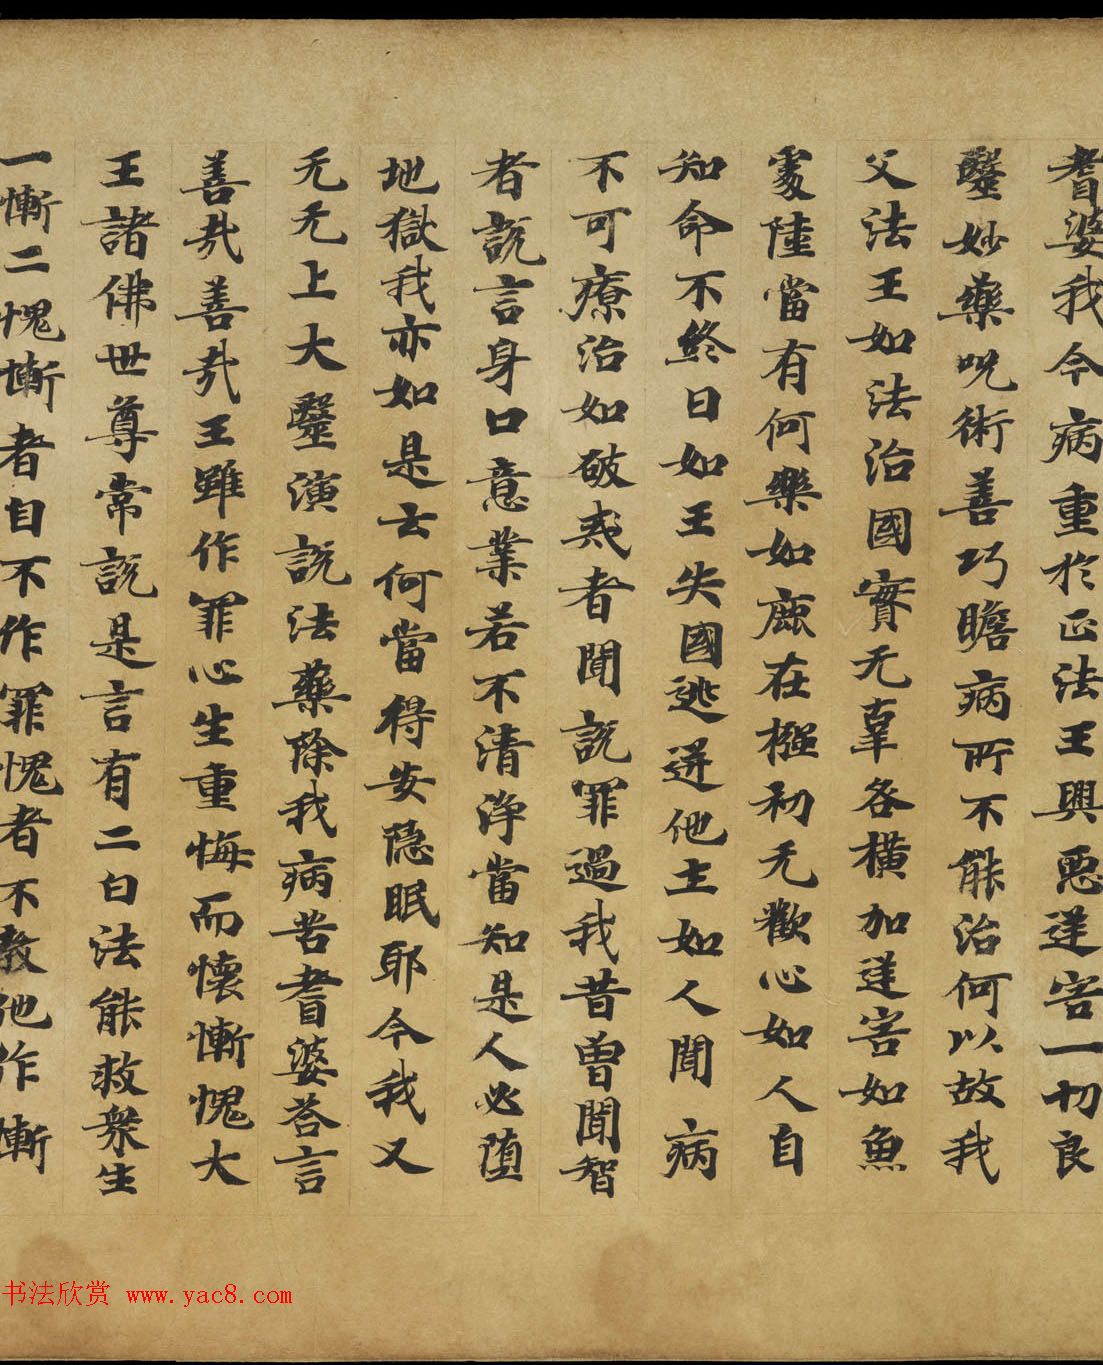 耆婆我今病重於正法王興惡逆害一切良
醫妙藥呪術善巧瞻病所不能治何以故我
父法王如法治國實无辜各橫加逆害如魚
處陸當有何樂如鹿在搦初无歡心如人自
知命不終日如王失國逃迸他土如人聞病
不可療治如破戒者聞說罪過我昔曾聞智
者說言身口意業若不清淨當知是人必墮
地獄我亦如是云何當得安隱眠耶今我又
无无上大醫演說法藥除我病苦耆婆荅言
善哉善哉王雖作罪心生重悔而懷慚愧大
王諸佛世尊常說是言有二白法能救衆生
一慚二愧慚者自不作罪愧者不教他作慚
书法欣赏 www.yac8.com